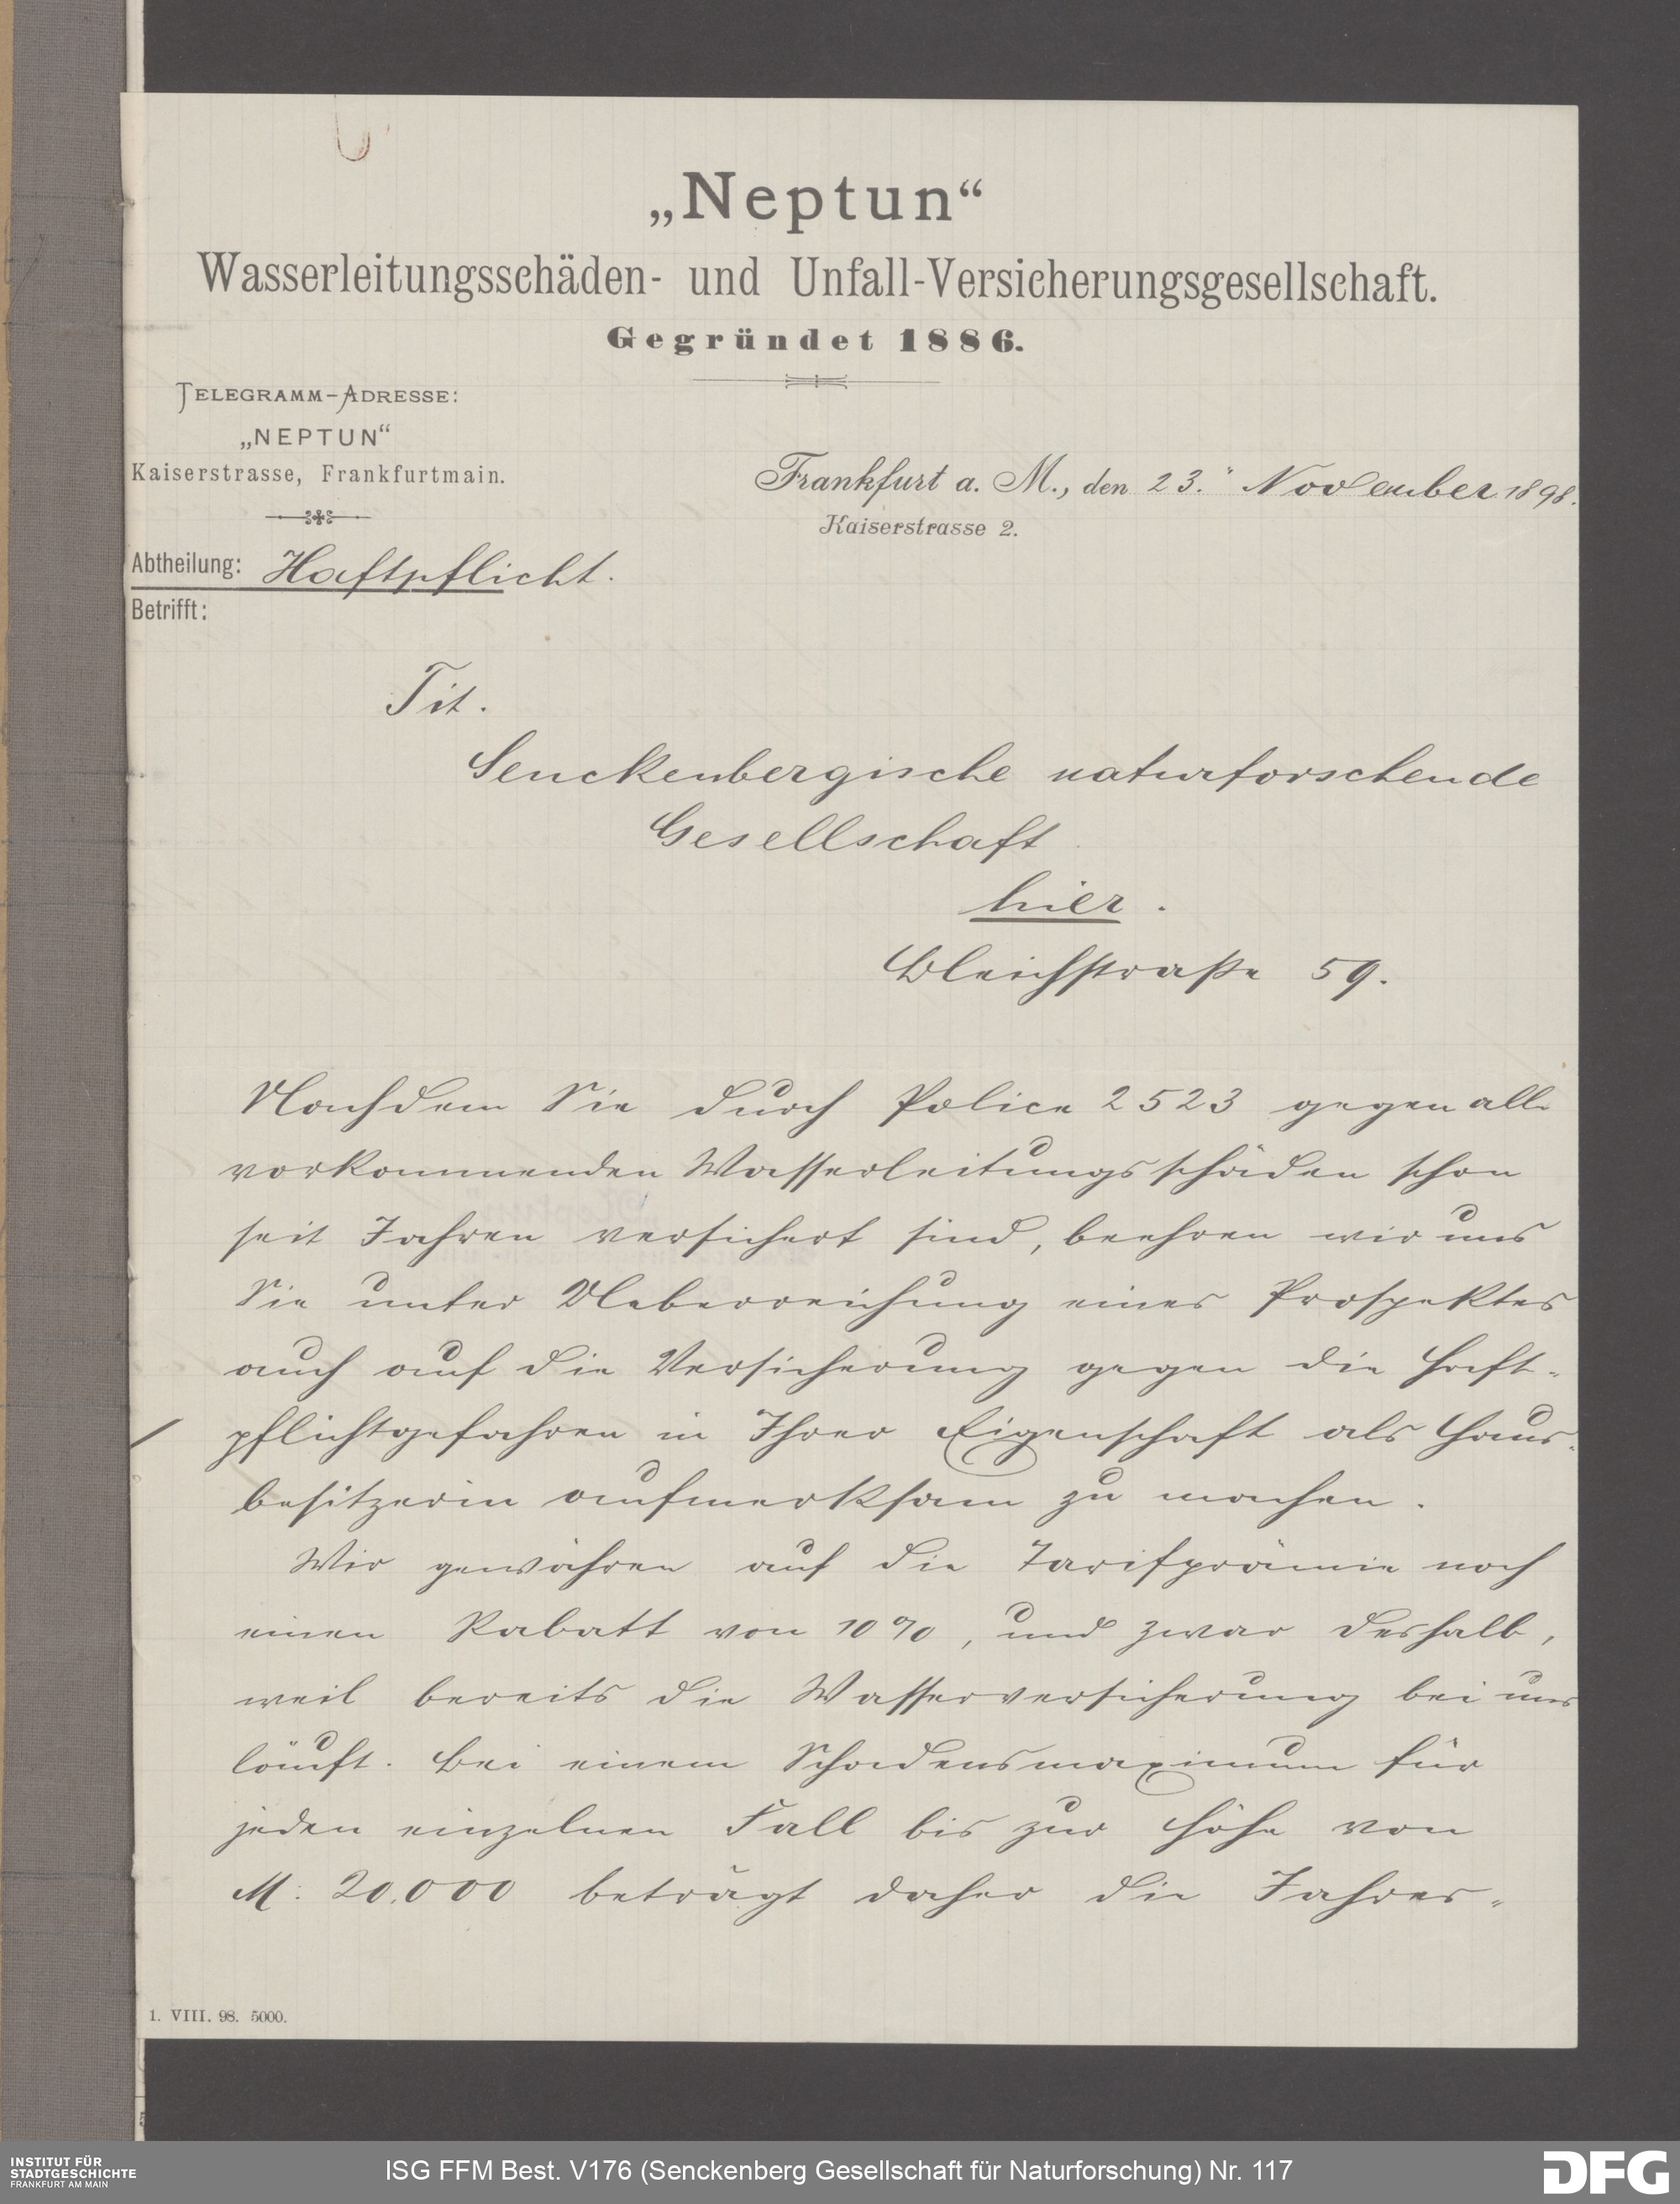 „Neptun“
Wasserleitungsschäden- und Unfall-Versicherungsgesellschaft.
Gegründet 1886.
TELEGRAMM-ADRESSE:
„NEPTUN“
Kaiserstrasse, Frankfurtmain.
Frankfurt a. M., den 23. November 1898.
Kaiserstrasse 2.
Abtheilung: Haftpflicht.
Betrifft:
Tit.
Senckenbergische naturforschende
Gesellschaft
hier.
Bleichstraße 59.
Nachdem Sie durch Police 2523 gegen alle
vorkommenden Wasserleitungsschäden schon
seit Jahren versichert sind, beehren wir uns
Sie unter Ueberreichung eines Prospektes
auch auf die Versicherung gegen die Haft-
pflichtgefahren in Ihrer Eigenschaft als Haus-
besitzerin aufmerksam zu machen.
Wir gewähren auf die Tarifprämie noch
einen Rabatt von 10%, und zwar deshalb,
weil bereits die Wasserversicherung bei uns
läuft. Bei einem Schadensmaximum für
jeden einzelnen Fall bis zur Höhe von
M. 20.000 beträgt daher die Jahres-
1. VIII. 98. 5000.
INSTITUT FÜR
STADTGESCHICHTE
FRANKFURT AM MAIN
ISG FFM Best. V176 (Senckenberg Gesellschaft für Naturforschung) Nr. 117
DFG